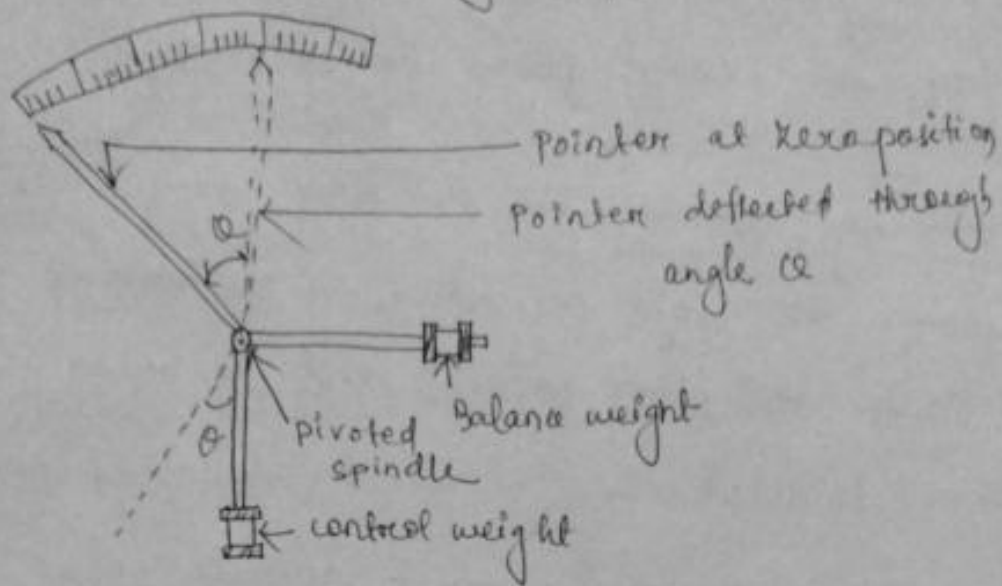 pointer at zero position
pointer deflected through
angle θ
θ
Balance weight
pivoted
spindle
θ
control weight